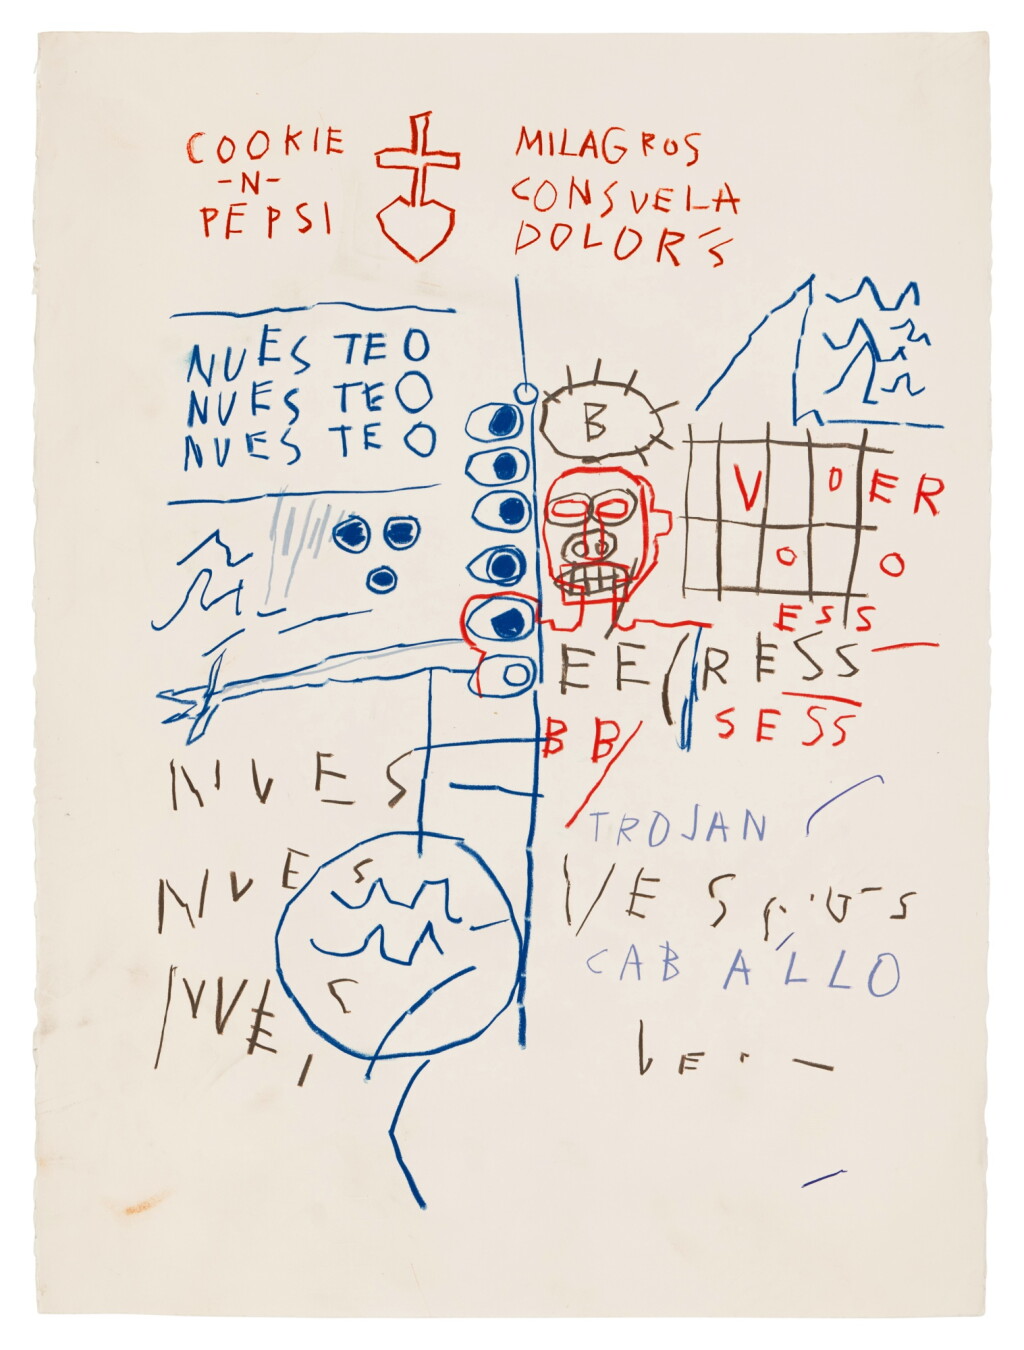 COOKIE
-N-
PEPSI
MILAGROS
CONSVELA
DOLOR'S
NUES TEO
NUES TEO
NUES TEO
B
V O ER
O O
ESS
EE(RESS
SESS
BB/
NIVES
TROJAN
NIVES
VES
CABALLO